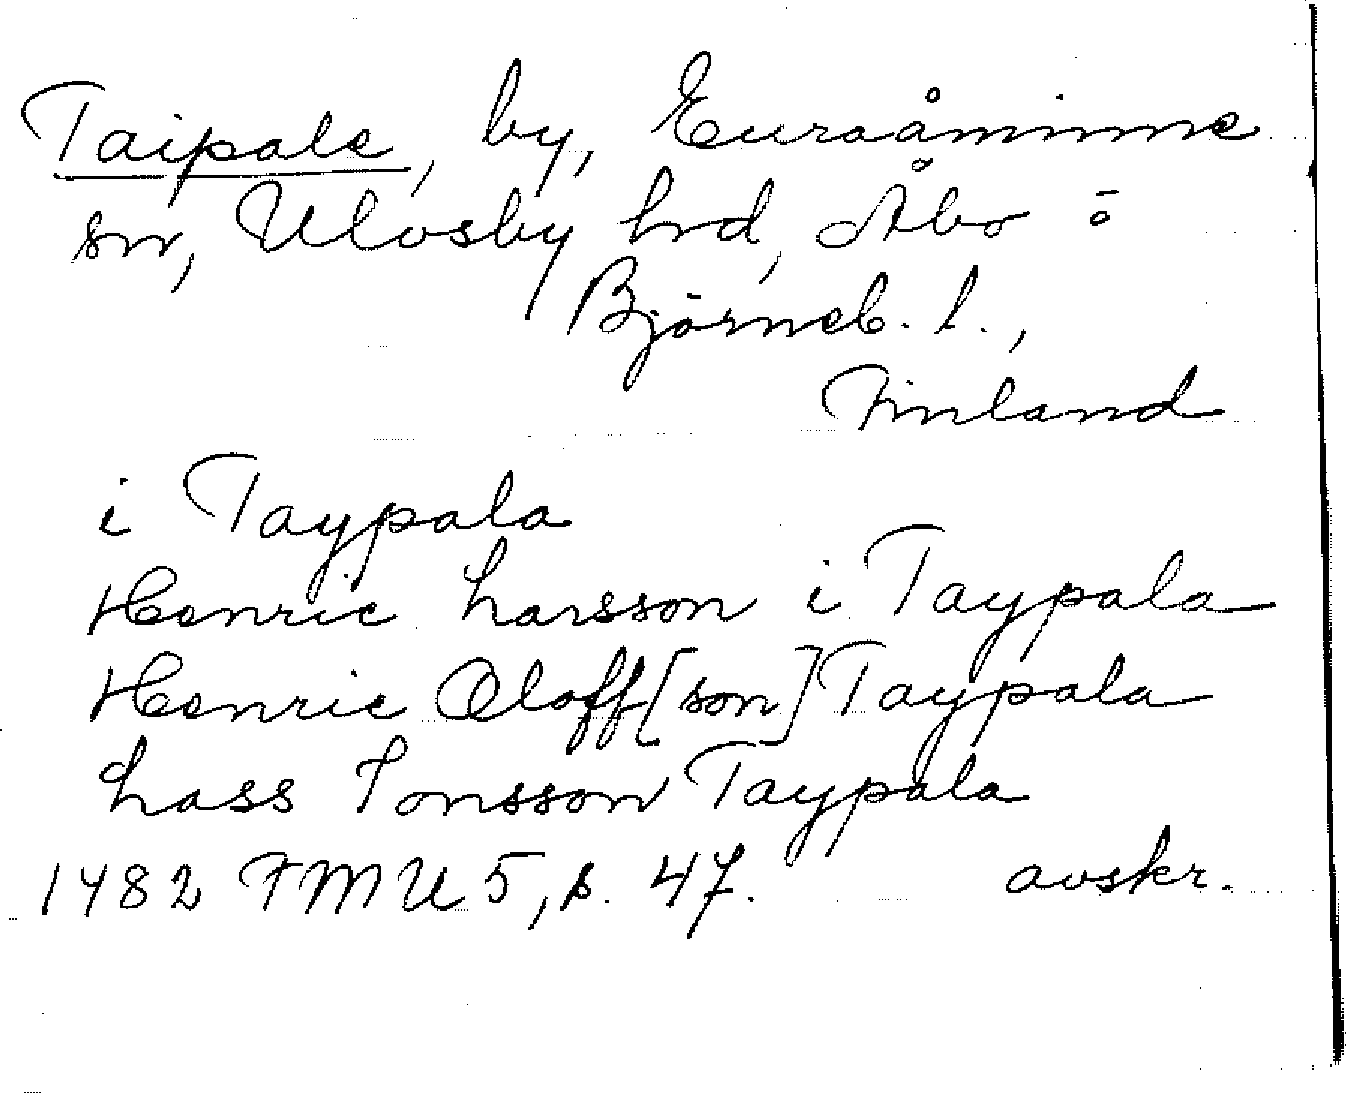 Taipale, by, Euraåminne
sn, Ulvsby hrd, Åbo o
Björneb. l.,
Finland
i Taypala
Henric Larsson i Taypala
Henric Oloff[son] Taypala
Lass Jonsson Taypala
1482 FMU 5, s. 47. avskr.